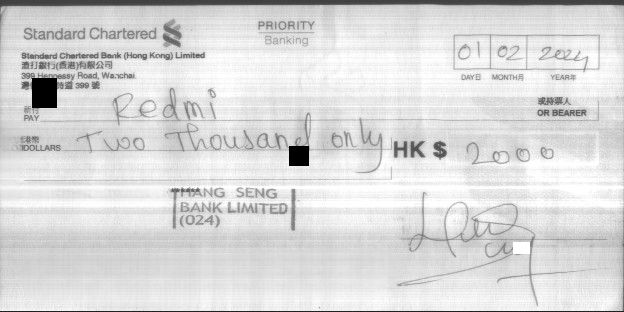 Standard Chartered
PRIORITY
Banking
Standard Chartered Bank (Hong Kong) Limited
渣打銀行(香港)有限公司
399 Hennessy Road, Wanchai
時道 399 號
01 02 2024
DAY日 MONTH月 YEAR年
祈付
PAY Redmi
或持票人
OR BEARER
港幣
DOLLARS Two Thousand only
HK $ 2000
HANG SENG
BANK LIMITED
(024)